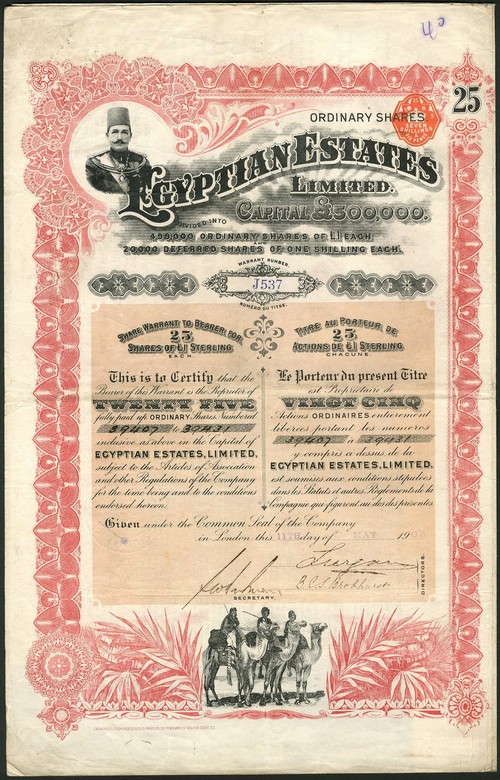 ORDINARY SHARES
25
SEVEN
SHILLINGS
EGYPTIAN ESTATES
LIMITED.
CAPITAL £500,000.
DIVIDED INTO
499,000 ORDINARY SHARES OF £1 EACH,
AND
20,000 DEFERRED SHARES OF ONE SHILLING EACH.
WARRANT NUMBER.
J537
NUMÉRO DU TITRE.
SHARE WARRANT TO BEARER FOR
25
SHARES OF £1 STERLING
EACH.
This is to Certify that the
Bearer of this Warrant is the Proprietor of
TWENTY FIVE
fully paid up ORDINARY Shares numbered
39407 to 39431
inclusive, as above in the Capital of
EGYPTIAN ESTATES, LIMITED,
subject to the Articles of Association
and other Regulations of the Company
for the time being and to the conditions
endorsed hereon.
TITRE AU PORTEUR DE
25
ACTIONS DE £1 STERLING
CHACUNE
Le Porteur du présent Titre
est Propriétaire de
VINGT CINQ
Actions ORDINAIRES entièrement
libérées portant les numéros
39407 à 39431
y compris a dessus de la
EGYPTIAN ESTATES, LIMITED,
est soumises aux conditions stipulées
dans les Statuts et autres Règlements de la
Compagnie que figurent au dos des présentes.
Given under the Common Seal of the Company
in London this 11TH day of MAY 190
SECRETARY.
DIRECTORS.